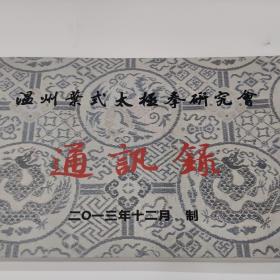 温州叶式太極拳研究會
通訊錄
二〇一三年十二月 制